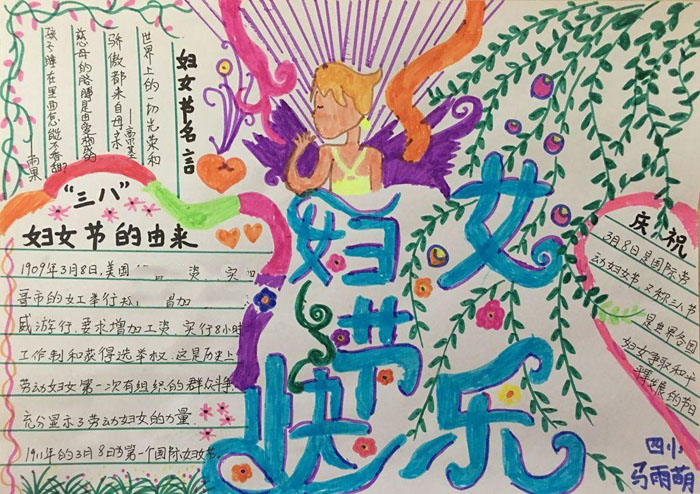 妇女节名言
世界上的一切光荣和
骄傲都来自母亲
——高尔基
慈母的胳膊是由爱构成的
孩子睡在里面怎能不香甜？
——雨果
“三八”
妇女节的由来
1909年3月8日，美国 资 实
哥市的女工举行 增加
威游行，要求增加工资 实行8小时
工作制和获得选举权 这是历史上
劳动妇女第一次有组织的群众斗争
充分显示了劳动妇女的力量
1911年的3月8日为第一个国际妇女节
妇女
节
快乐
庆祝
3月8日是国际劳
动妇女节 又称三八节
是世界各国
妇女争取和平
发展的节日
四小
马雨萌